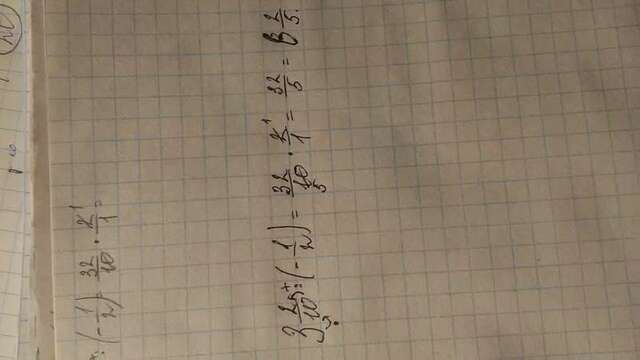 : (-1/2) = 32/10 · 2/1 =
3 2/10 : (-1/2) = 32/10 · 2/1 = 32/5 = 6 2/5.